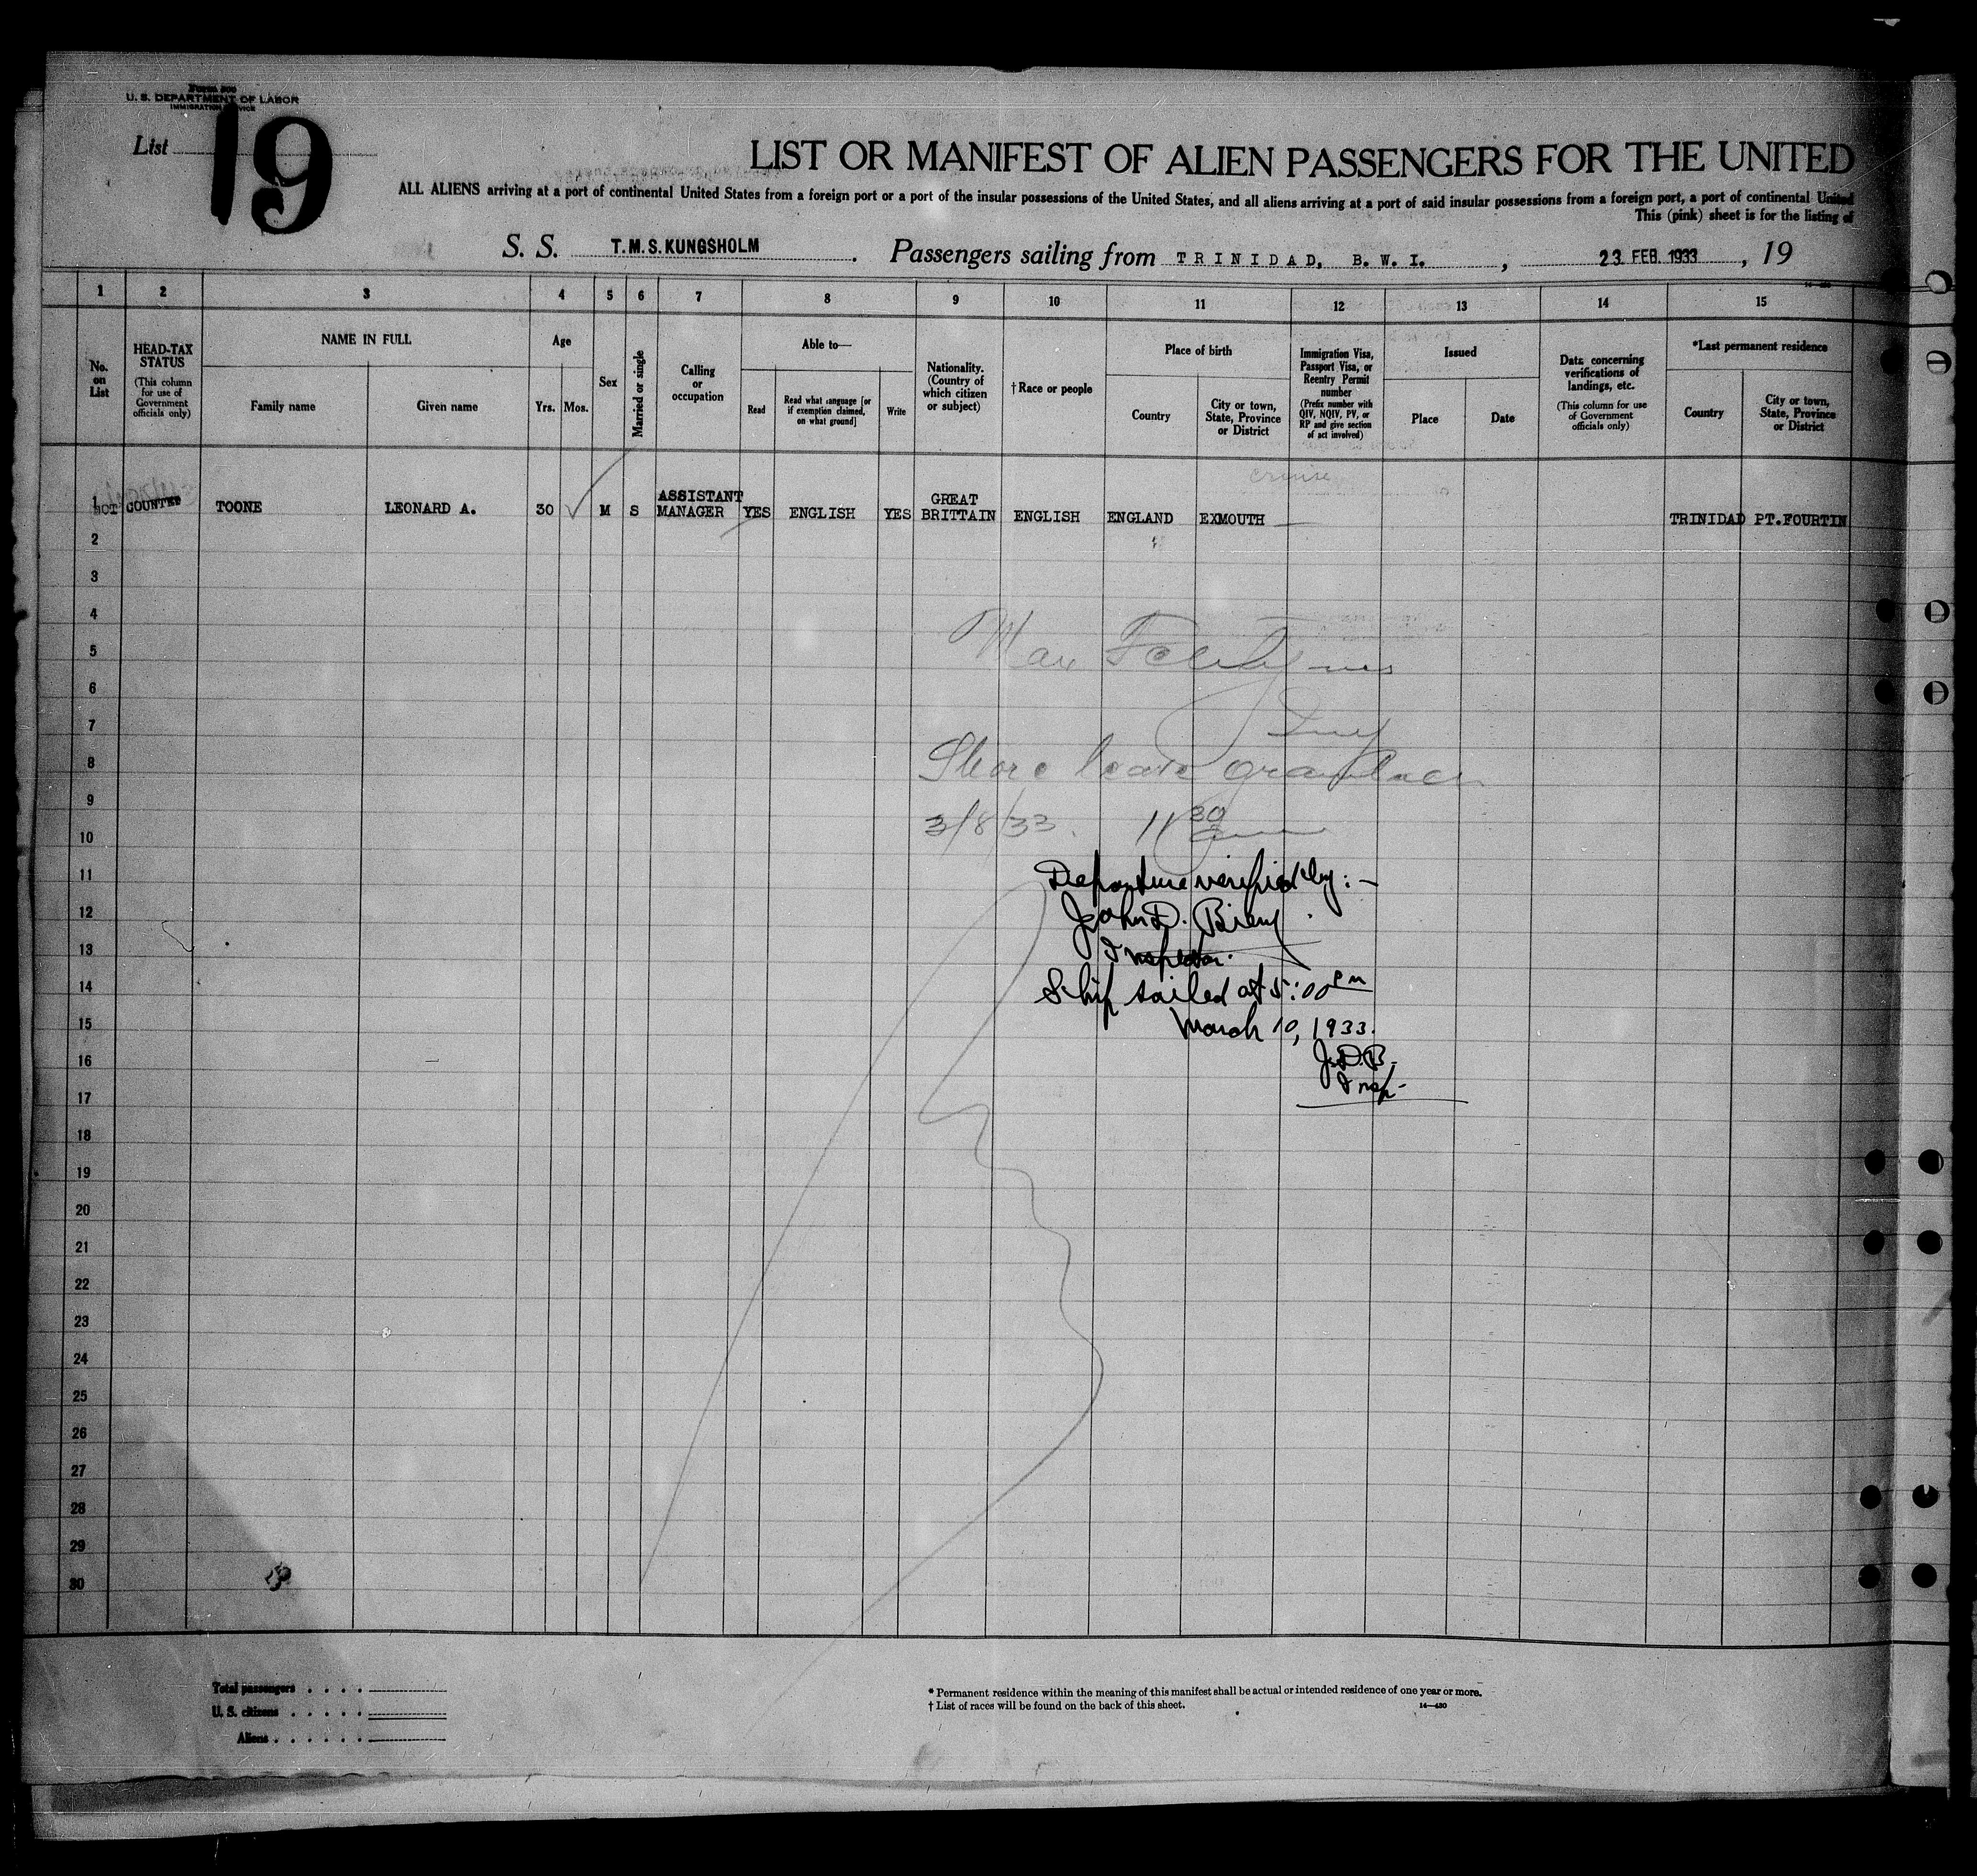 Form 500
U. S. DEPARTMENT OF LABOR
IMMIGRATION SERVICE
List 19
LIST OR MANIFEST OF ALIEN PASSENGERS FOR THE UNITED
ALL ALIENS arriving at a port of continental United States from a foreign port or a port of the insular possessions of the United States, and all aliens arriving at a port of said insular possessions from a foreign port, a port of continental United
This (pink) sheet is for the listing of
S. S. T.M.S. KUNGSHOLM. Passengers sailing from TRINIDAD, B. W. I., 23 FEB. 1933, 19
1 2 3 4 5 6 7 8 9 10 11 12 13 14 15
No. on List
HEAD-TAX STATUS
(This column for use of Government officials only)
NAME IN FULL
Family name
Given name
Age
Yrs. Mos.
Sex
Married or single
Calling or occupation
Able to—
Read
Read what language [or if exemption claimed, on what ground]
Write
Nationality. (Country of which citizen or subject)
† Race or people
Place of birth
Country
City or town, State, Province or District
Immigration Visa, Passport Visa, or Reentry Permit number
(Prefix number with QIV, NQIV, PV, or RP and give section of act involved)
Issued
Place
Date
Data concerning verifications of landings, etc.
(This column for use of Government officials only)
*Last permanent residence
Country
City or town, State, Province or District
cruise
1 NOT COUNTED TOONE LEONARD A. 30 ✓ M S ASSISTANT MANAGER YES ENGLISH YES GREAT BRITTAIN ENGLISH ENGLAND EXMOUTH TRINIDAD PT.FOURTIN
2
3
4
5
6
7
8
Shore leave
9
10
3/8/33. 11 30 am
11
Departure verified by:—
12
John D.
13
Inspector.
14
Ship sailed at 5:00 PM
15
March 10, 1933.
16
J.D.B.
Insp.
17
18
19
20
21
22
23
24
25
26
27
28
29
30
Total passengers . . . .
U. S. citizens . . . . .
Aliens . . . . . .
* Permanent residence within the meaning of this manifest shall be actual or intended residence of one year or more.
† List of races will be found on the back of this sheet.
14—430